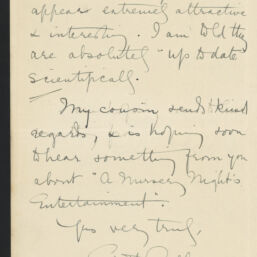 appears extremely attractive
& interesting. I am told they
are absolutely "up to date"
scientifically.
My cousin sends kind
regards, & is hoping soon
to hear something from you
about "A Nursery Night's
Entertainment".
Yrs very truly,